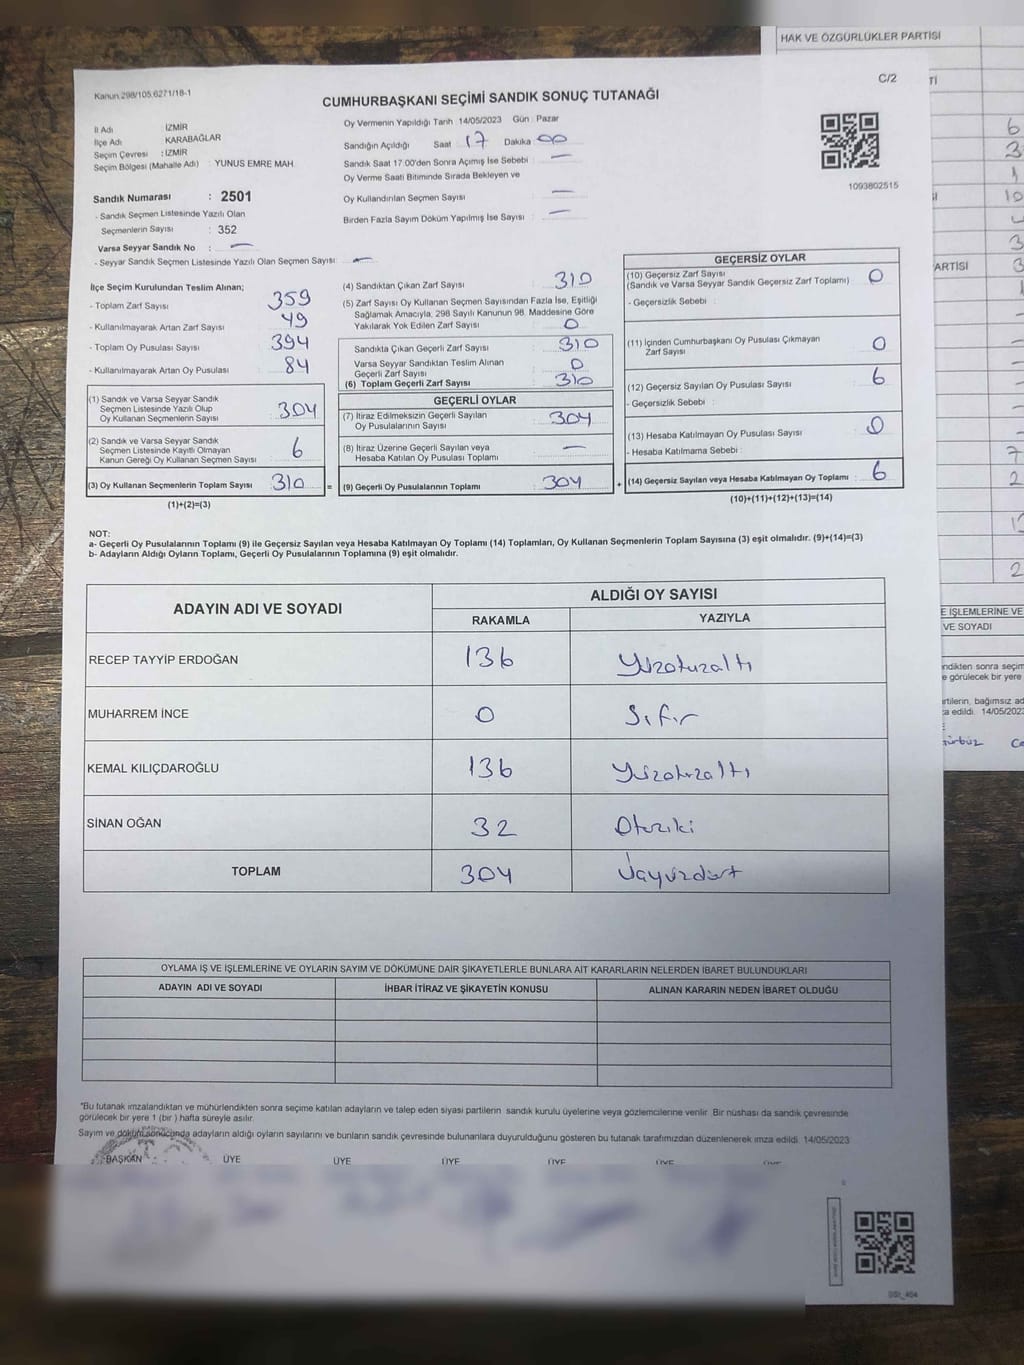 HAK VE ÖZGÜRLÜKLER PARTİSİ
C/2
Kanun 298/105.6271/18-1
CUMHURBAŞKANI SEÇİMİ SANDIK SONUÇ TUTANAĞI
İl Adı : İZMİR
İlçe Adı : KARABAĞLAR
Seçim Çevresi : İZMİR
Seçim Bölgesi (Mahalle Adı) : YUNUS EMRE MAH.
Oy Vermenin Yapıldığı Tarih 14/05/2023 Gün : Pazar
Sandığın Açıldığı Saat 17 Dakika 00
Sandık Saat 17:00'den Sonra Açımış İse Sebebi —
Oy Verme Saati Bitiminde Sırada Bekleyen ve
Oy Kullandırılan Seçmen Sayısı —
Birden Fazla Sayım Döküm Yapılmış İse Sayısı : —
1093802515
Sandık Numarası : 2501
- Sandık Seçmen Listesinde Yazılı Olan
Seçmenlerin Sayısı : 352
Varsa Seyyar Sandık No : —
- Seyyar Sandık Seçmen Listesinde Yazılı Olan Seçmen Sayısı: —
İlçe Seçim Kurulundan Teslim Alınan;
- Toplam Zarf Sayısı 359
- Kullanılmayarak Artan Zarf Sayısı 49
- Toplam Oy Pusulası Sayısı 394
- Kullanılmayarak Artan Oy Pusulası 84
(1) Sandık ve Varsa Seyyar Sandık
Seçmen Listesinde Yazılı Olup
Oy Kullanan Seçmenlerin Sayısı 304
(2) Sandık ve Varsa Seyyar Sandık
Seçmen Listesinde Kayıtlı Olmayan
Kanun Gereği Oy Kullanan Seçmen Sayısı 6
(3) Oy Kullanan Seçmenlerin Toplam Sayısı 310 =
(1)+(2)=(3)
(4) Sandıktan Çıkan Zarf Sayısı : 310
(5) Zarf Sayısı Oy Kullanan Seçmen Sayısından Fazla İse, Eşitliği
Sağlamak Amacıyla, 298 Sayılı Kanunun 98. Maddesine Göre
Yakılarak Yok Edilen Zarf Sayısı : 0
Sandıkta Çıkan Geçerli Zarf Sayısı : 310
Varsa Seyyar Sandıktan Teslim Alınan
Geçerli Zarf Sayısı : 0
(6) Toplam Geçerli Zarf Sayısı : 310
GEÇERLİ OYLAR
(7) İtiraz Edilmeksizin Geçerli Sayılan
Oy Pusulalarının Sayısı : 304
(8) İtiraz Üzerine Geçerli Sayılan veya
Hesaba Katılan Oy Pusulası Toplamı : —
(9) Geçerli Oy Pusulalarının Toplamı : 304 +
GEÇERSİZ OYLAR
(10) Geçersiz Zarf Sayısı
(Sandık ve Varsa Seyyar Sandık Geçersiz Zarf Toplamı) : 0
- Geçersizlik Sebebi :
(11) İçinden Cumhurbaşkanı Oy Pusulası Çıkmayan
Zarf Sayısı : 0
(12) Geçersiz Sayılan Oy Pusulası Sayısı : 6
- Geçersizlik Sebebi :
(13) Hesaba Katılmayan Oy Pusulası Sayısı : 0
- Hesaba Katılmama Sebebi :
(14) Geçersiz Sayılan veya Hesaba Katılmayan Oy Toplamı : 6
(10)+(11)+(12)+(13)=(14)
NOT:
a- Geçerli Oy Pusulalarının Toplamı (9) ile Geçersiz Sayılan veya Hesaba Katılmayan Oy Toplamı (14) Toplamları, Oy Kullanan Seçmenlerin Toplam Sayısına (3) eşit olmalıdır. (9)+(14)=(3)
b- Adayların Aldığı Oyların Toplamı, Geçerli Oy Pusulalarının Toplamına (9) eşit olmalıdır.
ADAYIN ADI VE SOYADI ALDIĞI OY SAYISI
RAKAMLA YAZIYLA
RECEP TAYYİP ERDOĞAN 136 Yüzotuzaltı
MUHARREM İNCE 0 Sıfır
KEMAL KILIÇDAROĞLU 136 Yüzotuzaltı
SİNAN OĞAN 32 Otuziki
TOPLAM 304 Üçyüzdört
OYLAMA İŞ VE İŞLEMLERİNE VE OYLARIN SAYIM VE DÖKÜMÜNE DAİR ŞİKAYETLERLE BUNLARA AİT KARARLARIN NELERDEN İBARET BULUNDUKLARI
ADAYIN ADI VE SOYADI İHBAR İTİRAZ VE ŞİKAYETİN KONUSU ALINAN KARARIN NEDEN İBARET OLDUĞU
*Bu tutanak imzalandıktan ve mühürlendikten sonra seçime katılan adayların ve talep eden siyasi partilerin sandık kurulu üyelerine veya gözlemcilerine verilir. Bir nüshası da sandık çevresinde
görülecek bir yere 1 (bir) hafta süreyle asılır.
Sayım ve döküm sonucunda adayların aldığı oyların sayılarını ve bunların sandık çevresinde bulunanlara duyurulduğunu gösteren bu tutanak tarafımızdan düzenlenerek imza edildi. 14/05/2023
BAŞKAN ÜYE ÜYE ÜYE ÜYE ÜYE ÜYE
Tİ
6
3
1
10
3
ARTİSİ 3
7
2
2
E İŞLEMLERİNE VE
VE SOYADI
ndikten sonra seçim
e görülecek bir yere
rtilerin, bağımsız ad
a edildi. 14/05/2023